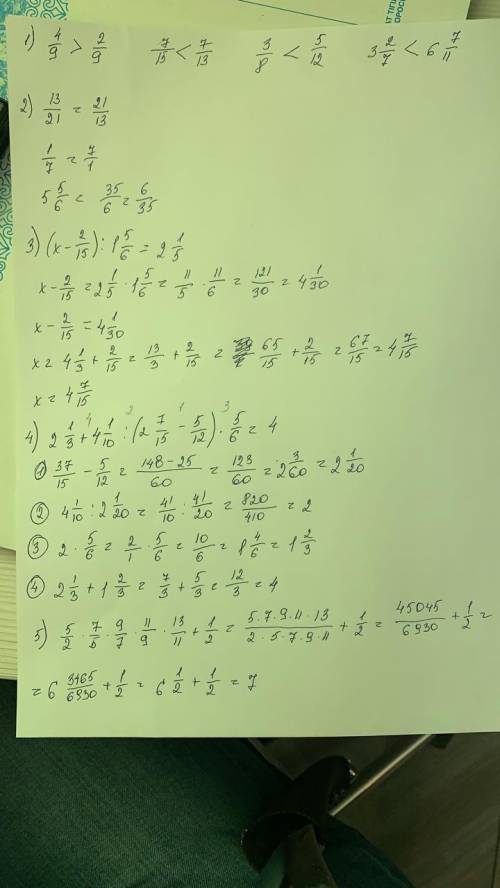 1) 4/9 > 2/9    7/15 < 7/13    3/8 < 5/12    3 2/7 < 6 7/11
2) 13/21 = 21/13
1/7 = 7/1
5 5/6 = 35/6 = 6/35
3) (x - 2/15) : 1 5/6 = 2 1/5
x - 2/15 = 2 1/5 · 1 5/6 = 11/5 · 11/6 = 121/30 = 4 1/30
x - 2/15 = 4 1/30
x = 4 1/3 + 2/15 = 13/3 + 2/15 = 65/15 + 2/15 = 67/15 = 4 7/15
x = 4 7/15
4 2 1 3
4) 2 1/3 + 4 1/10 : (2 7/15 - 5/12) · 5/6 = 4
① 37/15 - 5/12 = 148-25/60 = 123/60 = 2 3/60 = 2 1/20
② 4 1/10 : 2 1/20 = 41/10 : 41/20 = 820/410 = 2
③ 2 · 5/6 = 2/1 · 5/6 = 10/6 = 1 4/6 = 1 2/3
④ 2 1/3 + 1 2/3 = 7/3 + 5/3 = 12/3 = 4
5) 5/2 · 7/5 · 9/7 · 11/9 · 13/11 + 1/2 = 5·7·9·11·13/2·5·7·9·11 + 1/2 = 45045/6930 + 1/2 =
= 6 3465/6930 + 1/2 = 6 1/2 + 1/2 = 7